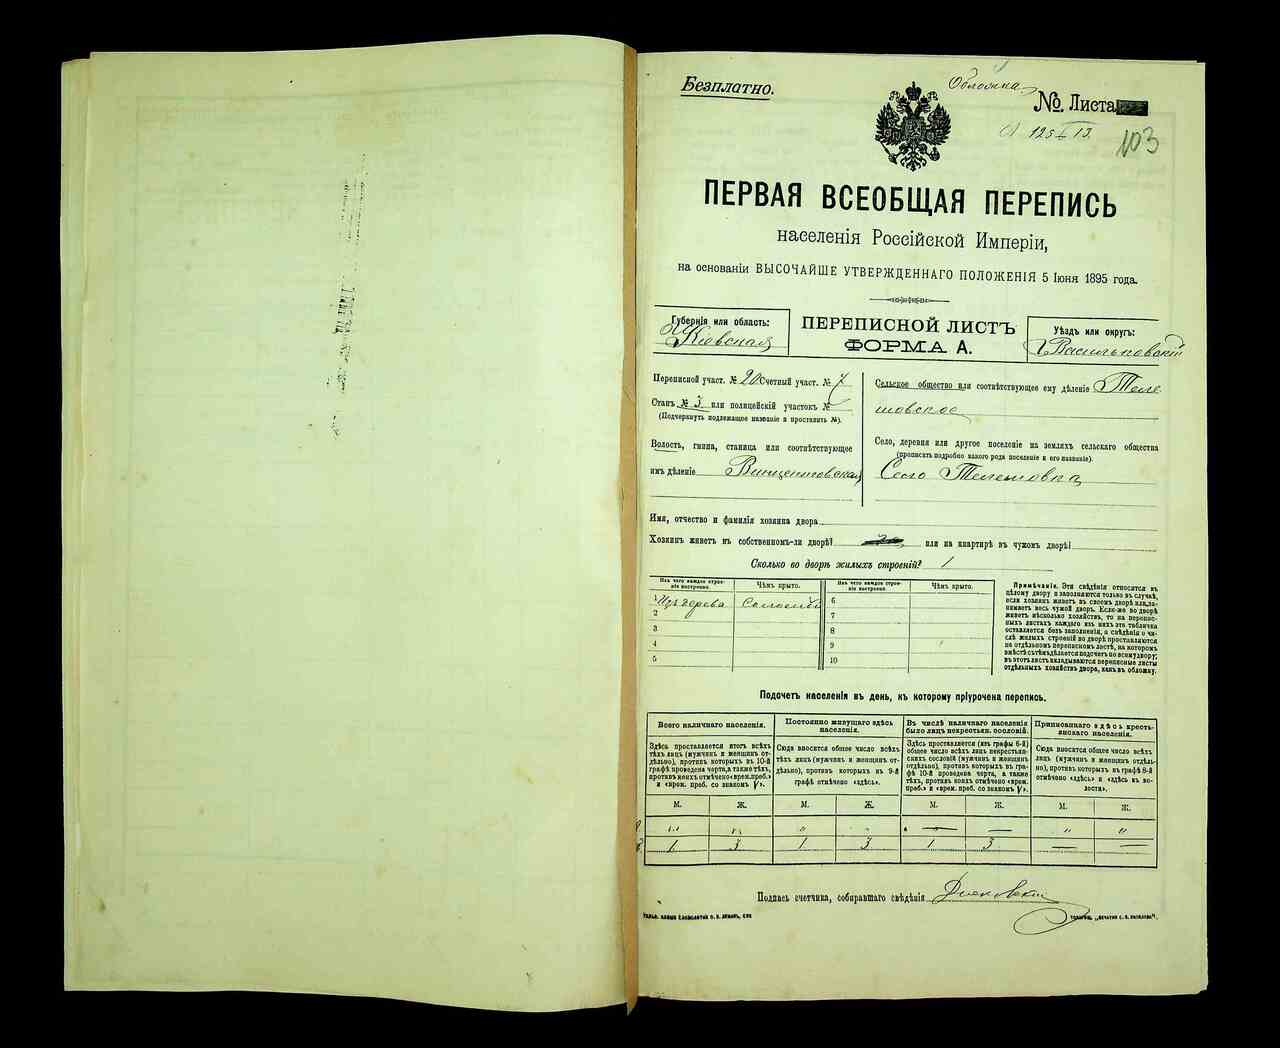 Безплатно.
Обложка
№ Листа
125 13.
103
ПЕРВАЯ ВСЕОБЩАЯ ПЕРЕПИСЬ
населенія Россійской Имперіи,
на основаніи ВЫСОЧАЙШЕ УТВЕРЖДЕННАГО ПОЛОЖЕНІЯ 5 Іюня 1895 года.
Губернія или область:
Кіевская
ПЕРЕПИСНОЙ ЛИСТЪ
ФОРМА А.
Уѣздъ или округъ:
Васильковскій
Переписной участ. № 20 Счетный участ. № 7
Станъ № 3 или полицейскій участокъ №
(Подчеркнуть подлежащее названіе и проставить №).
Волость, гмина, станица или соотвѣтствующее
имъ дѣленіе Винцентовская
Сельское общество или соотвѣтствующее ему дѣленіе Теле
шовское
Село, деревня или другое поселеніе на земляхъ сельскаго общества
(прописать подробно какого рода поселеніе и его названіе).
Село Телешовка
Имя, отчество и фамилія хозяина двора
Хозяинъ живетъ въ собственномъ-ли дворѣ? или на квартирѣ въ чужомъ дворѣ?
Сколько во дворѣ жилыхъ строеній? 1
Изъ чего каждое строеніе построено.
Чѣмъ крыто.
Изъ чего каждое строеніе построено.
Чѣмъ крыто.
1 Изъ дерева Соломой 6
2 7
3 8
4 9
5 10
Примѣчаніе. Эти свѣдѣнія относятся къ
цѣлому двору и заполняются только въ случаѣ,
если хозяинъ живетъ въ своемъ дворѣ или, занимаетъ
весь чужой дворъ. Если-же во дворѣ
живетъ нѣсколько хозяйствъ, то на переписныхъ
листахъ каждаго изъ нихъ эта табличка
оставляется безъ заполненія, а свѣдѣнія о числѣ
жилыхъ строеній во дворѣ проставляются
на отдѣльномъ переписномъ листѣ, на которомъ
вмѣстѣ съ тѣмъ дѣлается подсчетъ по всему двору;
въ этотъ листъ вкладываются переписные листы
отдѣльныхъ хозяйствъ двора, какъ въ обложку.
Подсчетъ населенія въ день, къ которому пріурочена перепись.
Всего наличнаго населенія.
Постоянно живущаго здѣсь населенія.
Въ числѣ наличнаго населенія было лицъ некрестьян. сословій.
Приписаннаго здѣсь крестьянскаго населенія.
Здѣсь проставляется итогъ всѣхъ
тѣхъ лицъ (мужчинъ и женщинъ отдѣльно),
противъ которыхъ въ 10-й
графѣ проведена черта, а также тѣхъ,
противъ коихъ отмѣчено «врем. преб.»
и «врем. преб. со знакомъ V».
Сюда вносится общее число всѣхъ
тѣхъ лицъ (мужчинъ и женщинъ отдѣльно),
противъ которыхъ въ 9-й
графѣ отмѣчено «здѣсь».
Здѣсь проставляется (изъ графы 6-й)
общее число всѣхъ лицъ некрестьянскихъ
сословій (мужчинъ и женщинъ
отдѣльно), противъ которыхъ въ графѣ
10-й проведена черта, а также
тѣхъ, противъ коихъ отмѣчено «врем.
преб.» и «врем. преб. со знакомъ V».
Сюда вносится общее число всѣхъ
лицъ (мужчинъ и женщинъ отдѣльно),
противъ которыхъ въ графѣ 8-й
отмѣчено «здѣсь» и «здѣсь въ волости».
М. Ж. М. Ж. М. Ж. М. Ж.
" " " " — — " "
1 3 1 3 1 3 — —
Подпись счетчика, собиравшаго свѣдѣнія